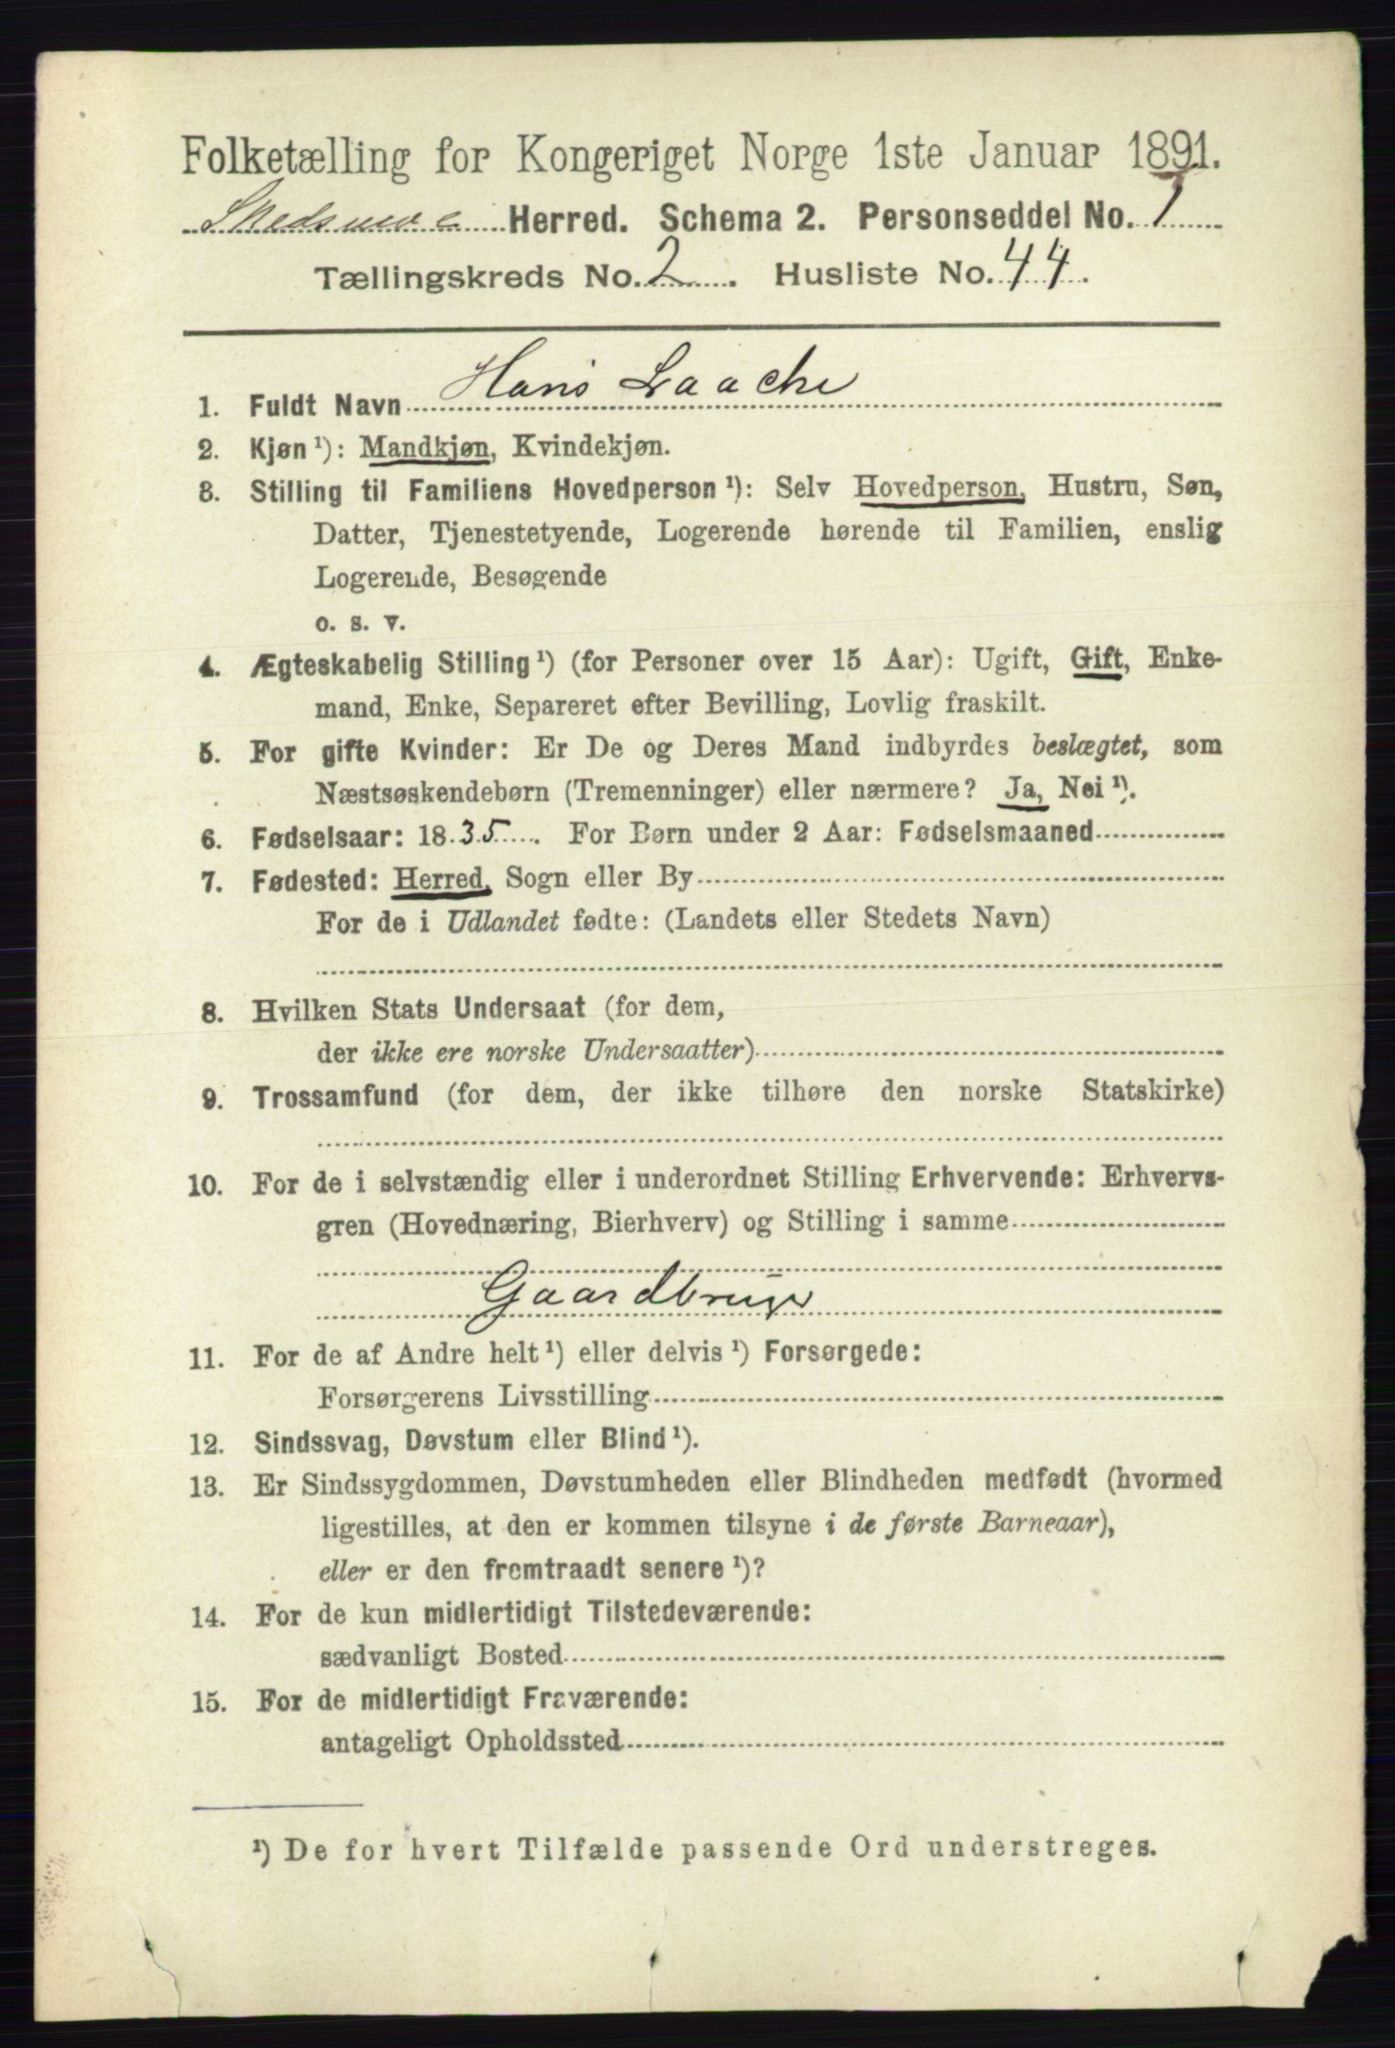 Folketælling for Kongeriget Norge 1ste Januar 1891.
Skedsmoe Herred. Schema 2. Personseddel No. 1
Tællingskreds No. 2. Husliste No. 44.
1. Fuldt Navn Hans Laache
2. Kjøn ¹): Mandkjøn, Kvindekjøn.
3. Stilling til Familiens Hovedperson ¹): Selv Hovedperson, Hustru, Søn,
Datter, Tjenestetyende, Logerende hørende til Familien, enslig
Logerende, Besøgende
o. s. v.
4. Ægteskabelig Stilling ¹) (for Personer over 15 Aar): Ugift, Gift, Enke-
mand, Enke, Separeret efter Bevilling, Lovlig fraskilt.
5. For gifte Kvinder: Er De og Deres Mand indbyrdes beslægtet, som
Næstsøskendebørn (Tremenninger) eller nærmere? Ja, Nei ¹).
6. Fødselsaar: 1835. For Børn under 2 Aar: Fødselsmaaned
7. Fødested: Herred, Sogn eller By
For de i Udlandet fødte: (Landets eller Stedets Navn)
8. Hvilken Stats Undersaat (for dem,
der ikke ere norske Undersaatter)
9. Trossamfund (for dem, der ikke tilhøre den norske Statskirke)
10. For de i selvstændig eller i underordnet Stilling Erhvervende: Erhvervs-
gren (Hovednæring, Bierhverv) og Stilling i samme
Gaardbruger
11. For de af Andre helt ¹) eller delvis ¹) Forsørgede:
Forsørgerens Livsstilling
12. Sindssvag, Døvstum eller Blind ¹).
13. Er Sindssygdommen, Døvstumheden eller Blindheden medfødt (hvormed
ligestilles, at den er kommen tilsyne i de første Barneaar),
eller er den fremtraadt senere ¹)?
14. For de kun midlertidigt Tilstedeværende:
sædvanligt Bosted
15. For de midlertidigt Fraværende:
antageligt Opholdssted
¹) De for hvert Tilfælde passende Ord understreges.